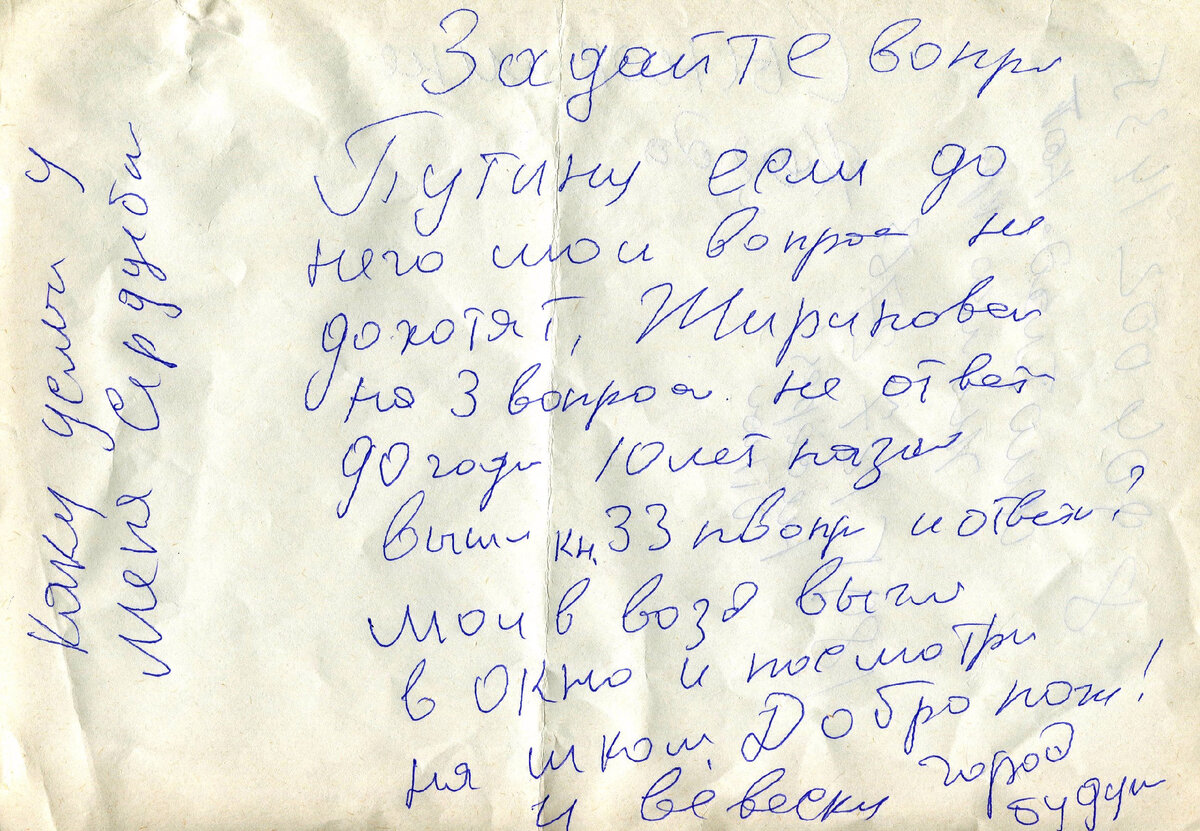 Задайте вопрс
Путину если до
него мои вопрос не
дохотят, Жириновск
на 3 вопроса не ответ
до годи 10 лет назад
вышл кн. 33 пвопр и ответ?
мои в возд выгл
в окно и посмотри
на школ. Добро пож!
и вевеску город
будущ
Каку усми у
меня Сярдуба